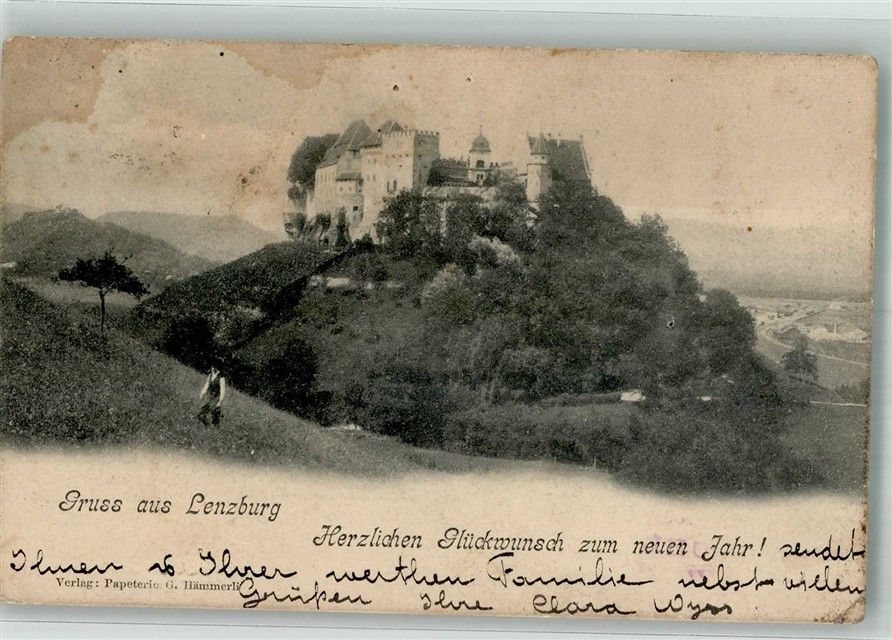 Gruss aus Lenzburg
Herzlichen Glückwunsch zum neuen Jahr! sendet
Ihnen & Ihrer werthen Familie nebst vielen
Verlag: Papeterie G. Hämmerli
Grüßen Ihre Clara Wyss